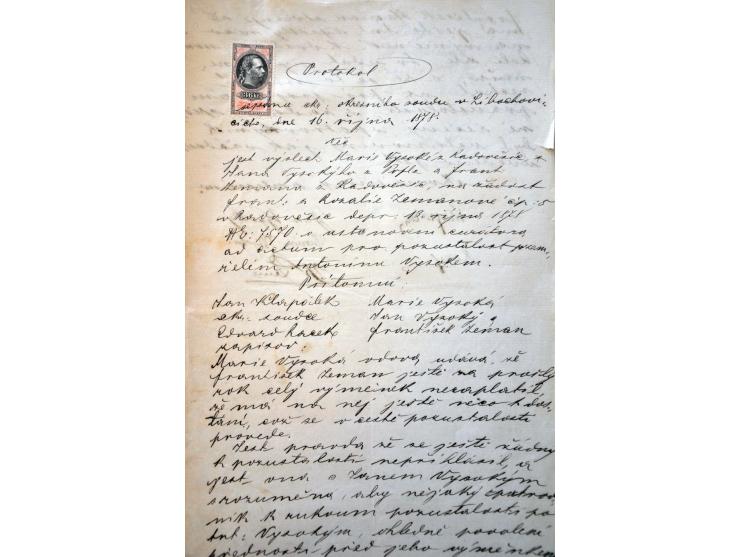 Protokol
sepsán u cís: okresního soudu v Libochovi-
cích, dne 16. října 1878.
Věc
jest výslech Marie Vysoké z Radovesic a
Jana Vysokýho z a Frant
Zemana z Radovesic, na žádost
Frant: a Rozalie Zemanové čp: 5
v Radovesic depr. 13. října 1878
NE: 7570 o ustanovení curatora
ad actum pro pozustalost po zem-
řelém Antonínu Vysokém.
Přítomní:
Jan Klapálek Marie Vysoká
soudce Jan Vysoký
Edvard František Zeman
zapisov.
Marie Vysoká vdova udává, že
František Zeman ještě za prošlý
rok celý výměnek nezaplatil,
že má na nej ještě něco k dos-
tání, což se v cestě pozustalosti
provede.
Jest pravda že se ještě žádný
k pozustalosti nepřihlásil, a
jest ona s Janem Vysokým
srozuměna, aby nějaký opatrov-
ník k rukoum pozustalosti po
Ant: Vysokým, ohledně povolení
přednosti před jeho výměnkem